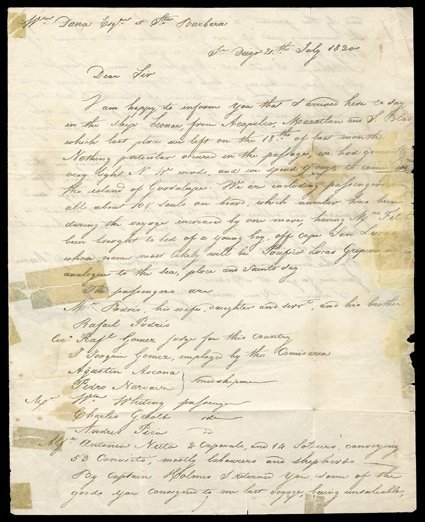 Wm Dana Esqr at Sta Barbara
Sn Dago 21th July 1830
Dear Sir
I am happy to inform You that I arrived here to day
in the ship Leonor from Acapulco, Mazatlan and Sn Blas
which last place we left on the 18th of last month
Nothing particular occured in the passage, we had generally
very light N. W. winds, and we spend days to come
the island of Guadalupe. We are including passengers
all about 105 souls on board, which number has been
during the voyage increased by one more, having Mrs
been brought to bed of a young boy, off cape San Lucas
whose name most likely will be Pacifico Lucas
analogue to the sea, place and Saints day
The passengers are
Mr Fodris his wife, daughter and servt and his brother
Rafael Fodris
Licdo Rafl Gomez judge for this country
Jn Joaquin Gomez, employed by the Comisaria
Agustin
Pedro Narvaez } midshipmen
Wm Whiting passenger
Charles
Andres Pico do
Antonio Nieto 2 Caporals, and 14 Soldiers, convoying
53 Convicts, mostly labourers and shepherds
By Captain Holmes I returned You some of the
goods You consigned to me last voyage, being unsaleable